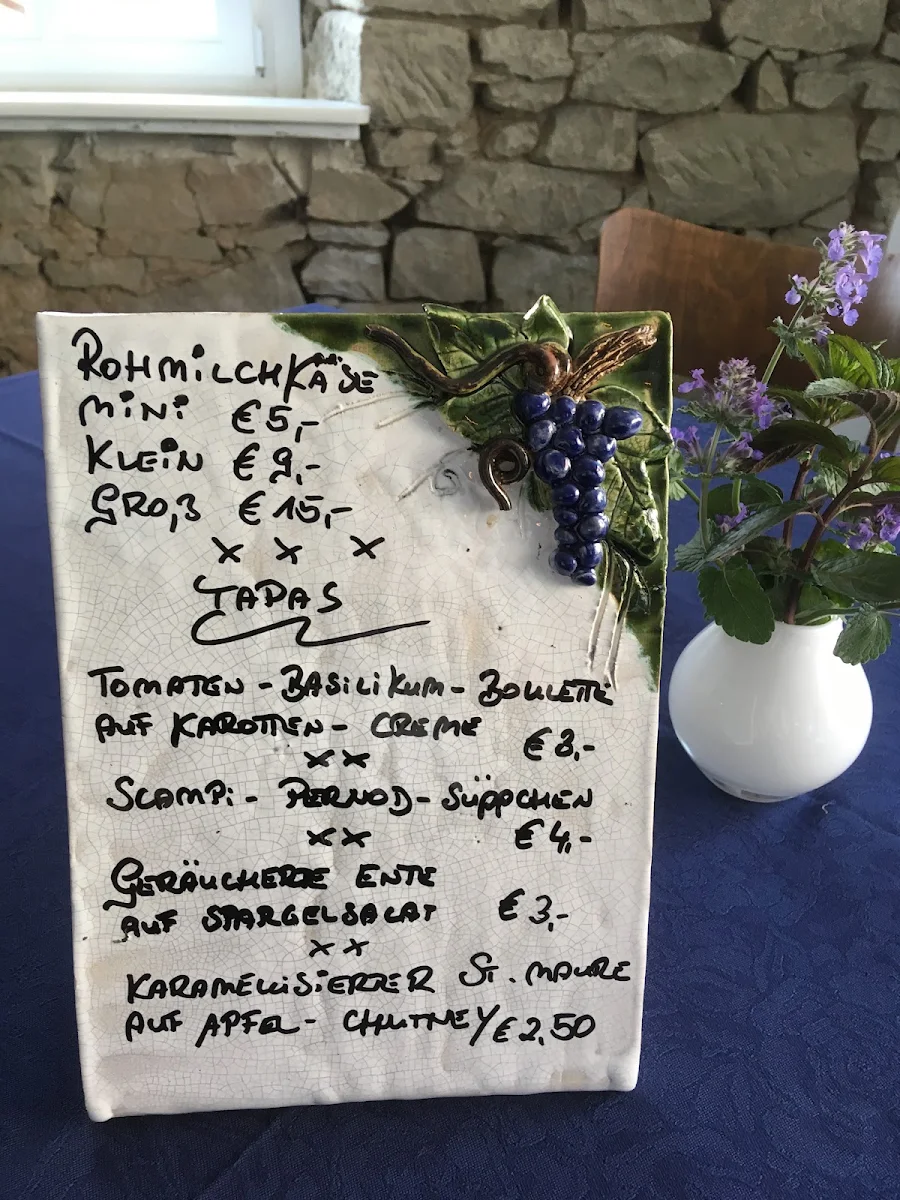 ROHMILCHKÄSE
MINI €5,-
KLEIN €9,-
GROß €15,-
x x x
TAPAS
TOMATEN-BASILIKUM-BOULETTE
AUF KAROTTEN-CREME
€3,-
xx
SCAMPI-PERNOD-SÜPPCHEN
xx €4,-
GERÄUCHERTE ENTE
AUF SPARGELSALAT €3,-
xx
KARAMELLISIERTER ST. MAURE
AUF APFEL-CHUTNEY €2,50